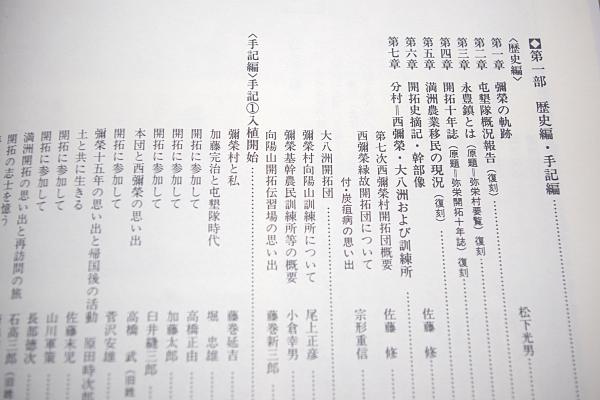 ◆第一部 歴史編・手記編
〈歴史編〉
第一章 彌榮の軌跡 松下光男
第二章 屯墾隊概況報告（復刻）
第三章 永豊鎮とは（原題＝弥栄村要覧）復刻
第四章 開拓十年誌（原題＝弥栄開拓十年誌）復刻
第五章 満洲農業移民の現況（復刻）
第六章 開拓史摘記・幹部像 佐藤 修
第七章 分村＝西彌榮・大八洲および訓練所
第七次西彌榮村開拓団概要 佐藤 修
西彌榮縁故開拓団について
付・炭疽病の思い出 宗形重信
大八洲開拓団
彌榮村向陽山訓練所について 尾上正彦
彌榮基幹農民訓練所等の概要 小倉幸男
向陽山開拓伝習場の思い出 藤巻新三郎
〈手記編〉手記①入植開始
彌榮村と私 藤巻延吉
加藤完治と屯墾隊時代 堀 忠雄
開拓に参加して 高橋正由
開拓に参加して 加藤太郎
開拓に参加して 臼井縫三郎
本団と西彌榮の思い出 高橋 武（旧姓
開拓に参加して 菅沢安雄
彌榮十五年の思い出と帰国後の活動 原田時次郎
土と共に生きる 佐藤末児
開拓に参加して 山川軍策
満洲開拓の思い出と再訪問の旅 長部徳次
開拓の志士を憶う 石高三郎（旧姓